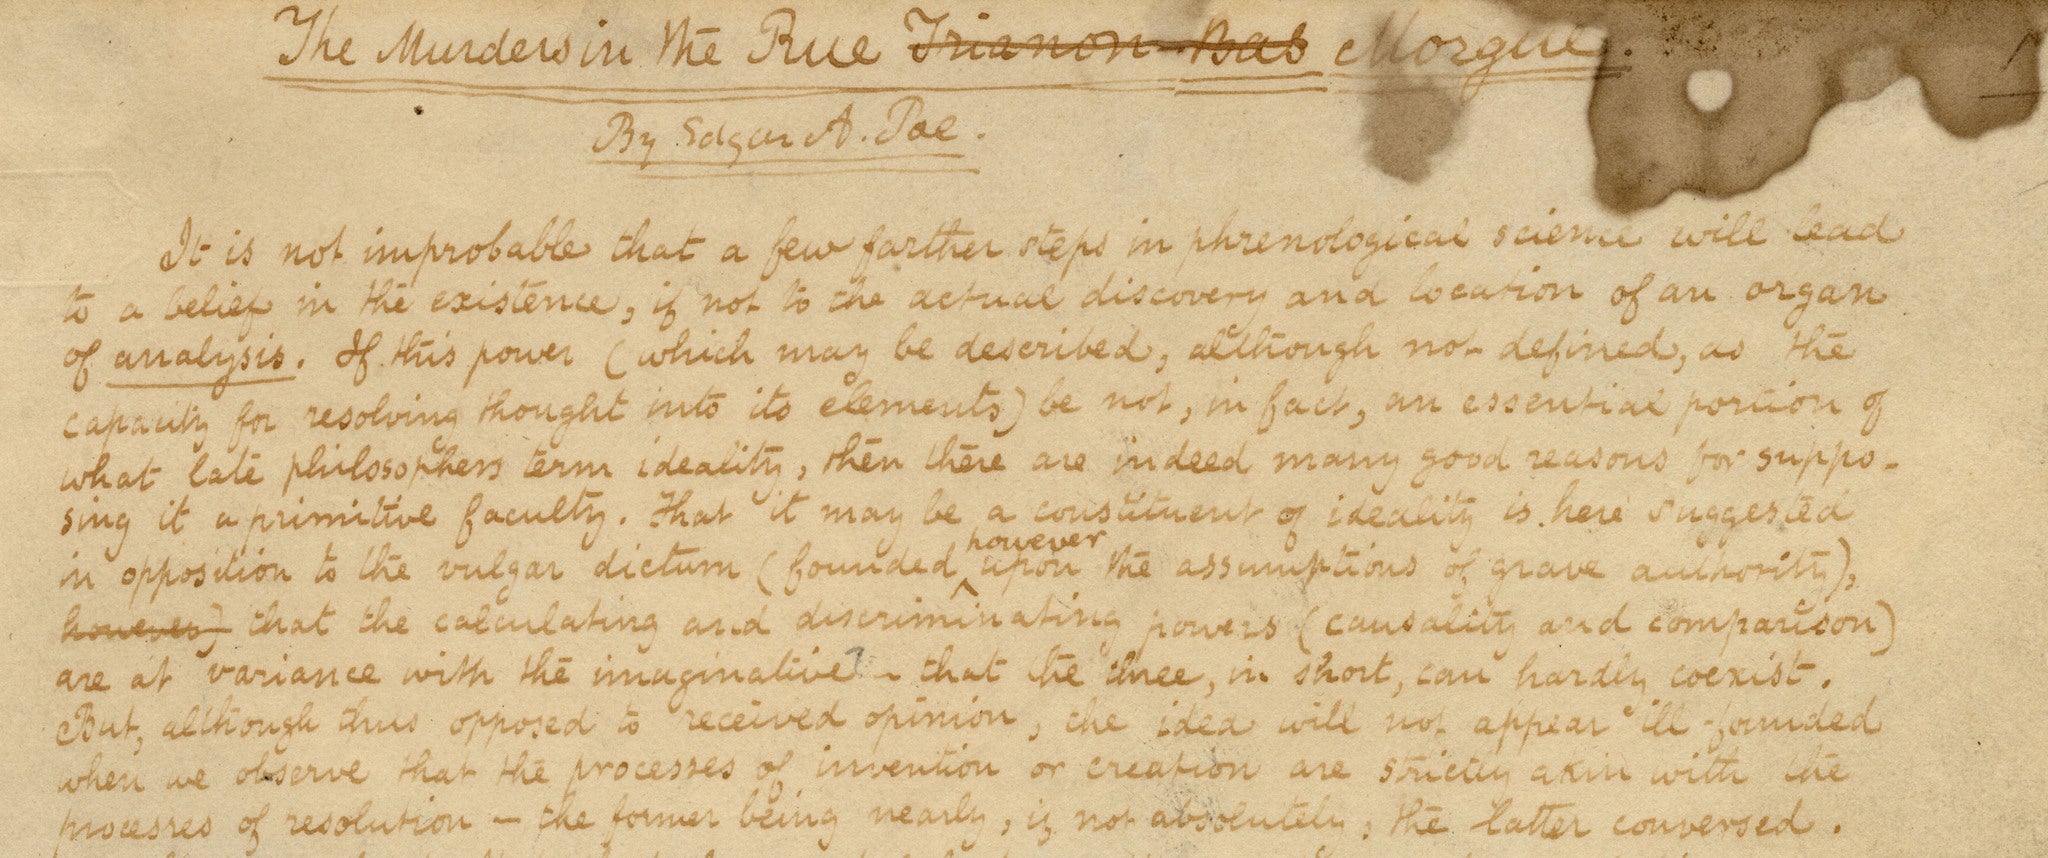 The Murders in the Rue Trianon-Bas Morgue.
By Edgar A. Poe.
It is not improbable that a few farther steps in phrenological science will lead
to a belief in the existence, if not to the actual discovery and location of an organ
of analysis. If this power (which may be described, although not defined, as the
capacity for resolving thought into its elements) be not, in fact, an essential portion of
what late philosophers term ideality, then there are indeed many good reasons for suppo-
sing it a primitive faculty. That it may be a constituent of ideality is here suggested
in opposition to the vulgar dictum (founded however upon the assumptions of grave authority),
however) that the calculating and discriminating powers (causality and comparison)
are at variance with the imaginative - that the three, in short, can hardly coexist.
But, although thus opposed to received opinion, the idea will not appear ill-founded
when we observe that the processes of invention or creation are strictly akin with the
processes of resolution - the former being nearly, if not absolutely, the latter conversed.